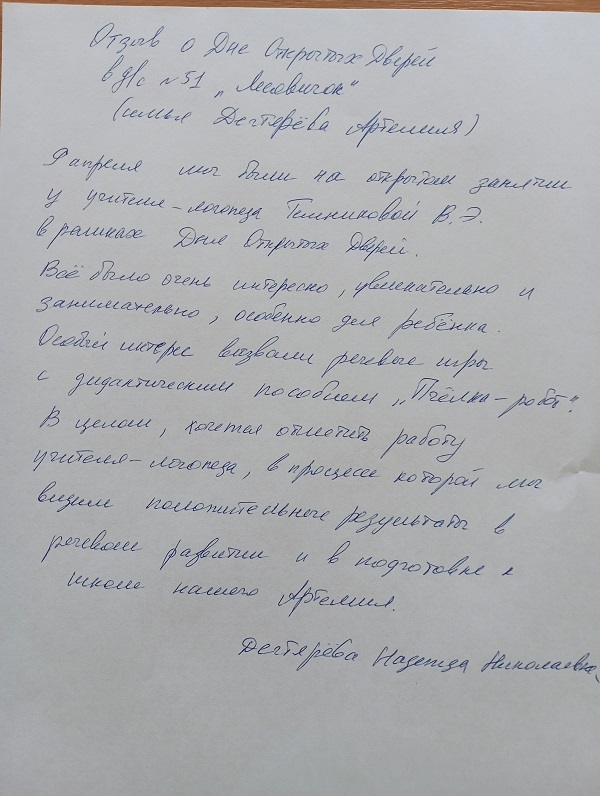 Отзыв о Дне Открытых Дверей
в д/с №51 „Лесовичок"
(семья Дегтярёва Артемия)
9 апреля мы были на открытом занятии
у учителя-логопеда Темниковой В.Э.
в рамках Дня Открытых Дверей.
Всё было очень интересно, увлекательно и
занимательно, особенно для ребёнка.
Особый интерес вызвали речевые игры
с дидактическим пособием „Пчёлка-робот".
В целом, хочется отметить работу
учителя-логопеда, в процессе которой мы
видим положительные результаты в
речевом развитии и в подготовке к
школе нашего Артемия.
Дегтярёва Надежда Николаевна